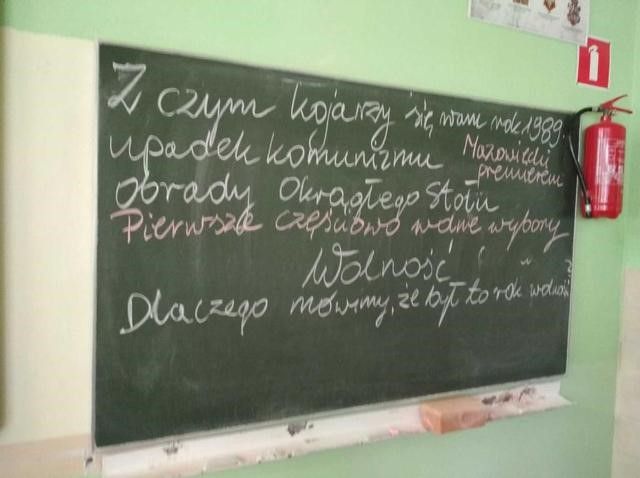 Z czym kojarzy się wam rok 1989.
upadek komunizmu
Mazowiecki
premierem
obrady Okrągłego Stołu
Pierwsze częściowo wolne wybory
Wolność
Dlaczego mówimy, że był to rok wolności